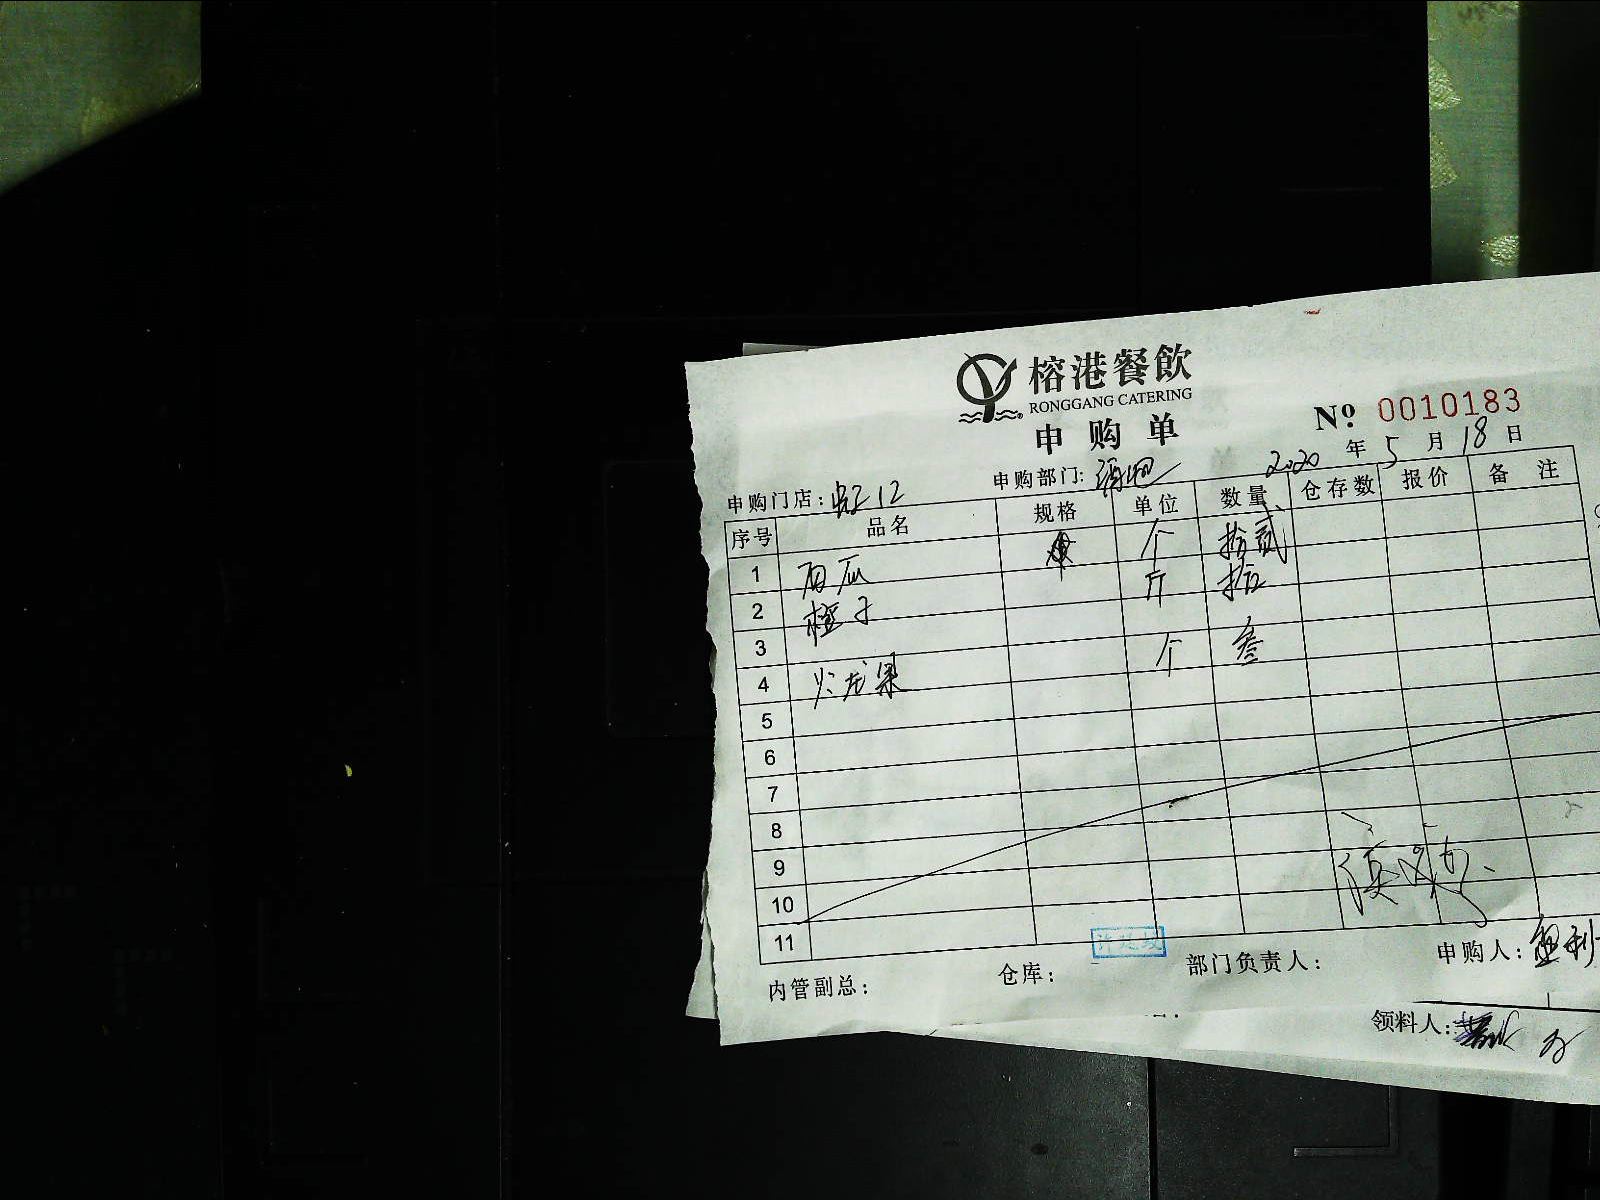 榕港餐飲
RONGGANG CATERING
申购单
№ 0010183
2020年5月18日
申购门店: 申购部门: 酒吧
序号 品名 规格 单位 数量 仓存数 报价 备注
1 西瓜 个 拾贰
2 橙子 斤 拾
3
4 火龙果 个 叁
5
6
7
8
9
10
11
内管副总: 仓库: 部门负责人: 申购人:
领料人: